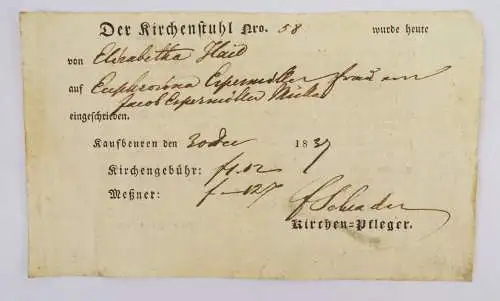 Der Kirchenstuhl Nro. 58 wurde heute
von Elisabetha Haid
auf Euphrosina Espermüller
Jacob Espermüller
eingeschrieben.
Kaufbeuren den 30 Dec 1837
Kirchengebühr: f 1.12
Meßner: f — 12 x
Schrader
Kirchen=Pfleger.